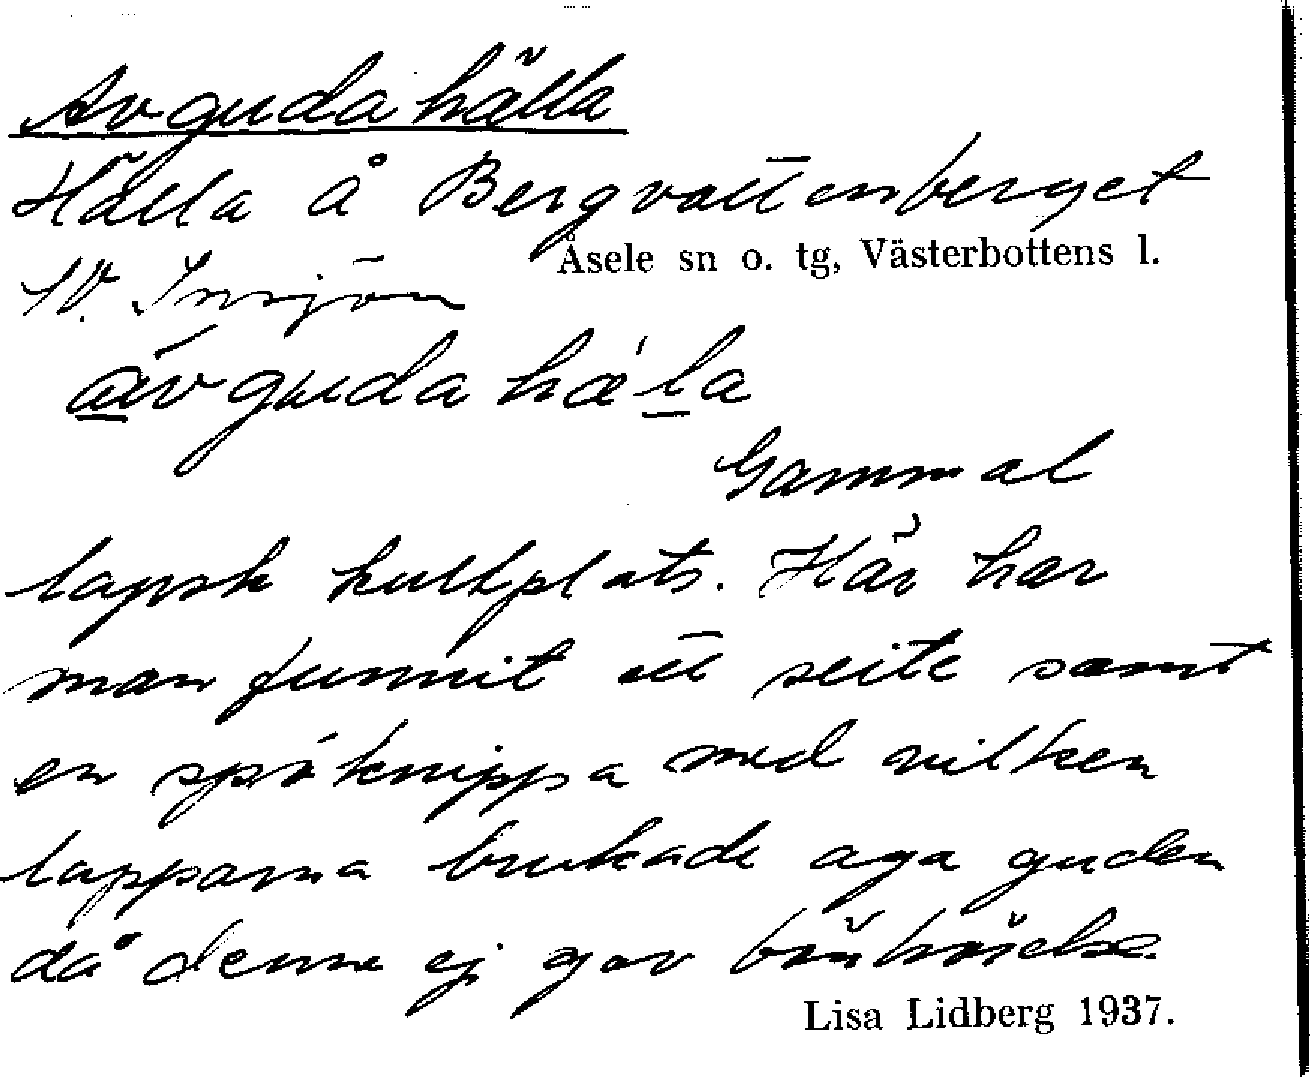 Avgudahälla
Hälla å Bergvattenberget
Åsele sn o. tg, Västerbottens l.
SV. Insjön
ávguda hæ̀la
Gammal
lapsk kultplats. Här har
man funnit ett seite samt
en spöknippa med vilken
lapparna brukade aga guden
då denne ej gav bönhörelse.
Lisa Lidberg 1937.